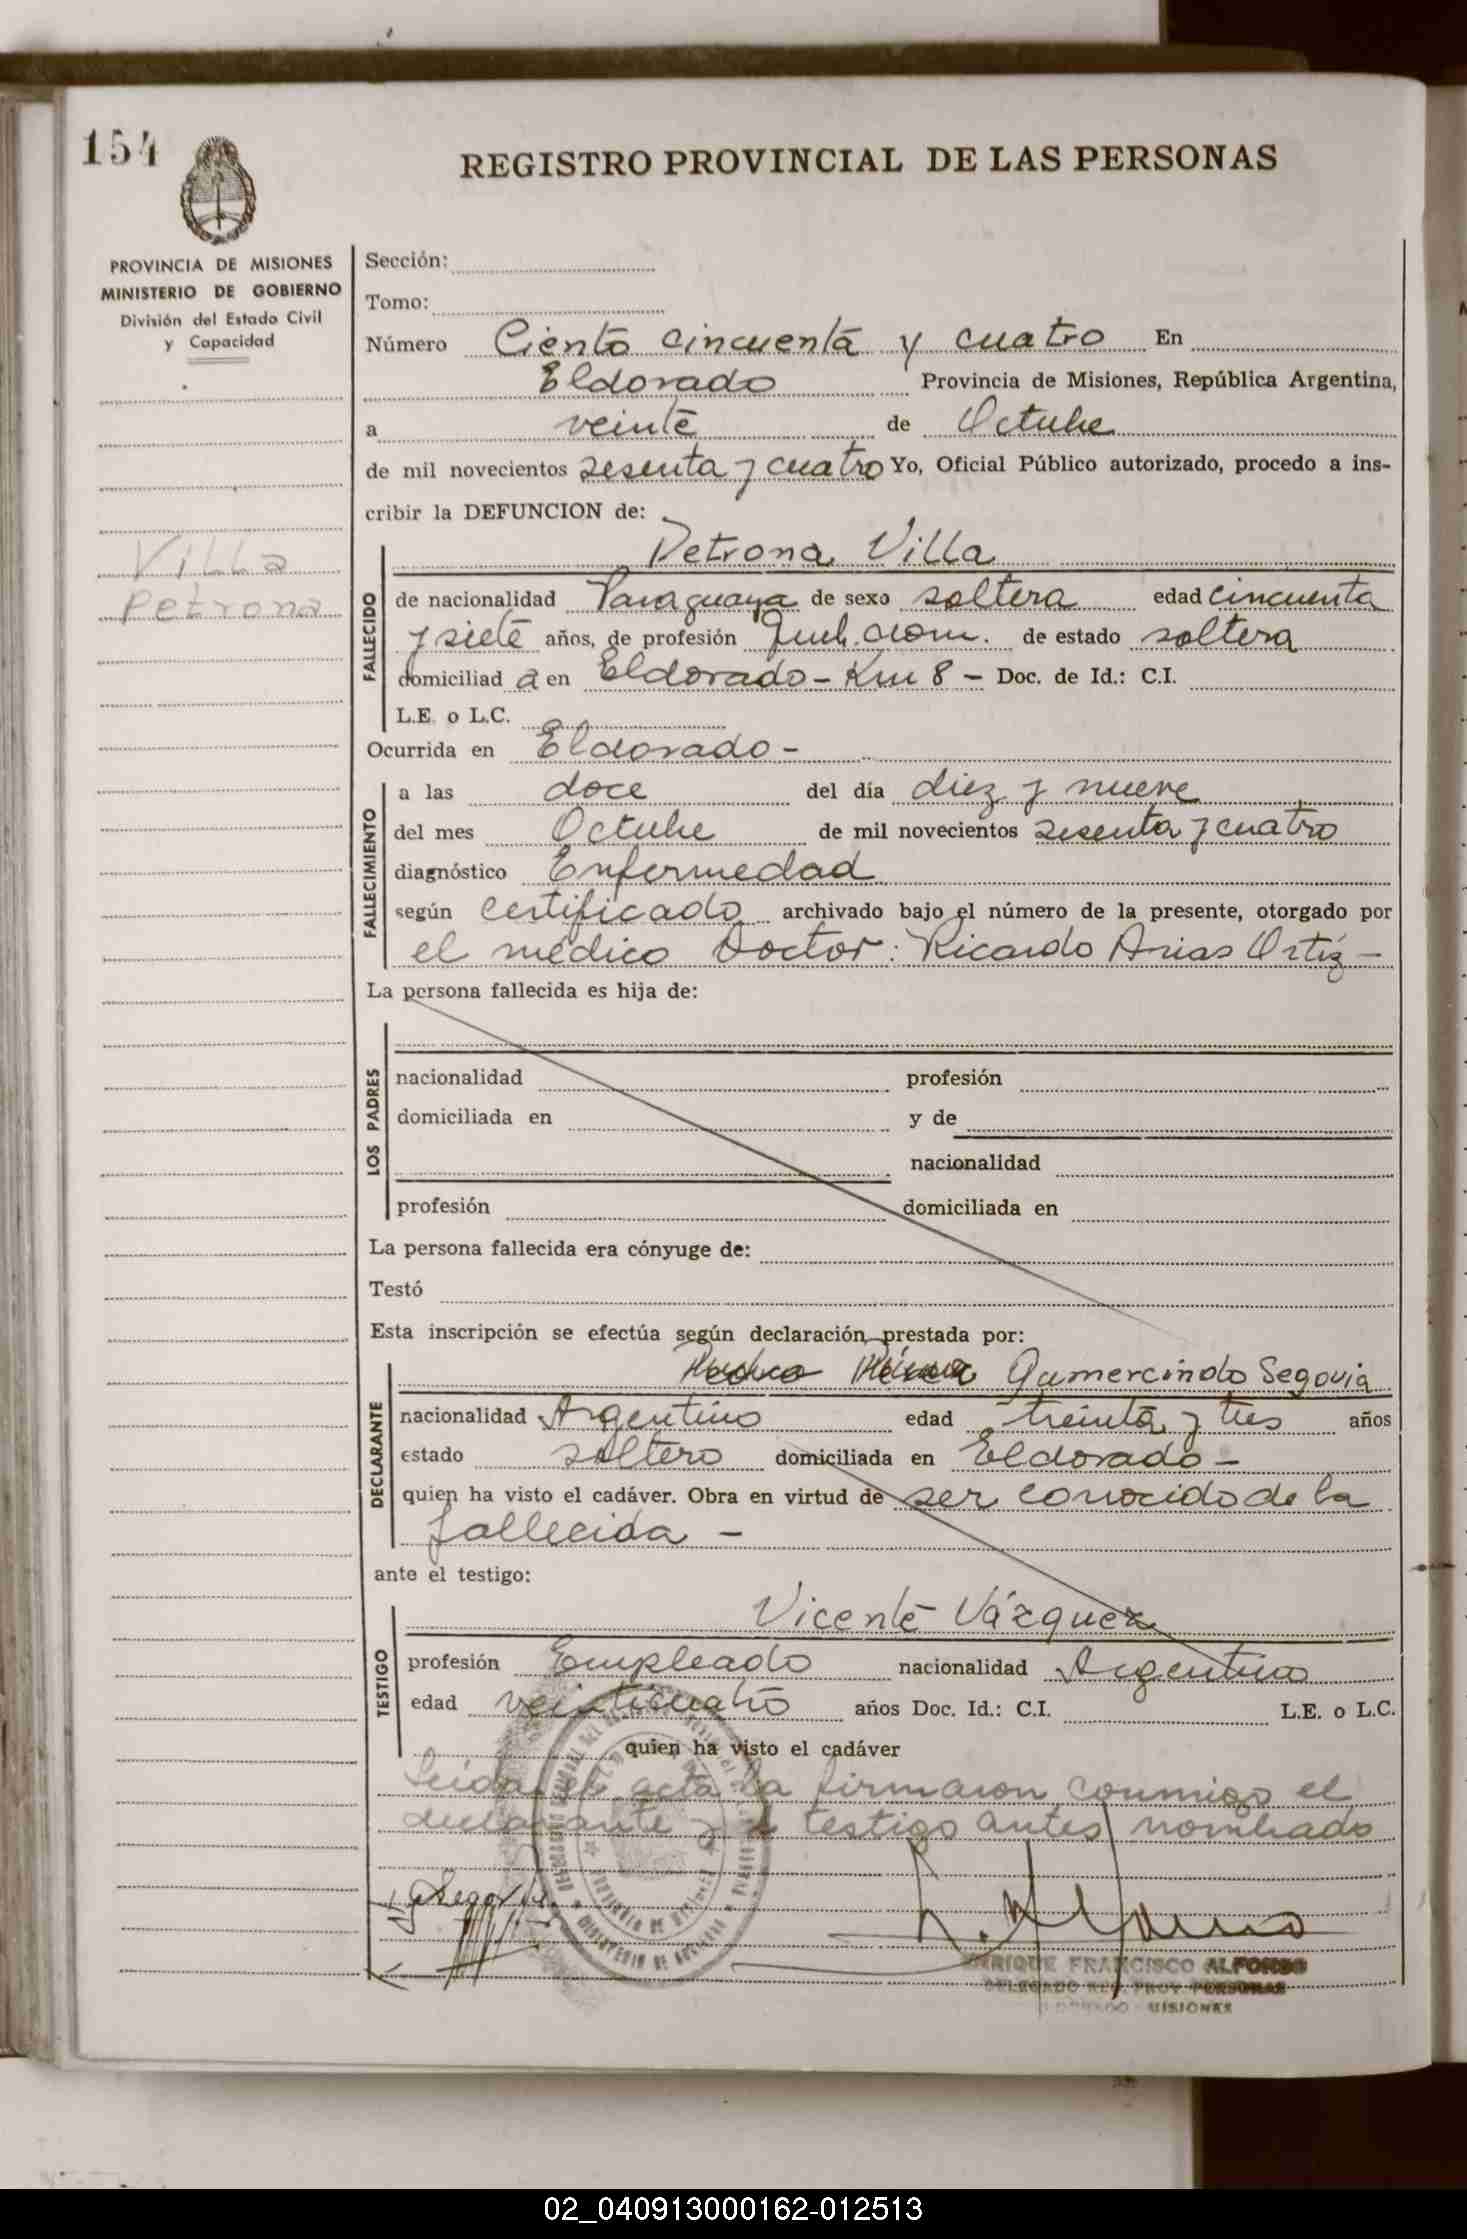 154
REGISTRO PROVINCIAL DE LAS PERSONAS
PROVINCIA DE MISIONES
MINISTERIO DE GOBIERNO
División del Estado Civil
y Capacidad
Villa
Petrona
Sección:
Tomo:
Número Ciento cincuenta y cuatro En
Eldorado Provincia de Misiones, República Argentina,
a veinte de Octubre
de mil novecientos sesenta y cuatro Yo, Oficial Público autorizado, procedo a ins-
cribir la DEFUNCION de:
Petrona Villa
FALLECIDO
de nacionalidad Paraguaya de sexo soltera edad cincuenta
y siete años, de profesión Queh. dom. de estado soltera
domiciliad a en Eldorado - Km 8 - Doc. de Id.: C.I.
L.E. o L.C.
Ocurrida en Eldorado -
FALLECIMIENTO
a las doce del día diez y nueve
del mes Octubre de mil novecientos sesenta y cuatro
diagnóstico Enfermedad
según certificado archivado bajo el número de la presente, otorgado por
el médico Doctor: Ricardo Arias Ortíz -
La persona fallecida es hija de:
LOS PADRES
nacionalidad profesión
domiciliada en y de
nacionalidad
profesión domiciliada en
La persona fallecida era cónyuge de:
Testó
Esta inscripción se efectúa según declaración prestada por:
Gumercindo Segovia
DECLARANTE
nacionalidad Argentino edad treinta y tres años
estado soltero domiciliada en Eldorado -
quien ha visto el cadáver. Obra en virtud de ser conocido de la
fallecida -
ante el testigo:
Vicente Vázquez
TESTIGO
profesión Empleado nacionalidad Argentino
edad veinticuatro años Doc. Id.: C.I. L.E. o L.C.
quien ha visto el cadáver
Leida el acta la firmaron conmigo el
declarante y el testigo antes nombrado
ENRIQUE FRANCISCO ALFONSO
DELEGADO REG. PROV. PERSONAS
ELDORADO - MISIONES
02_040913000162-012513